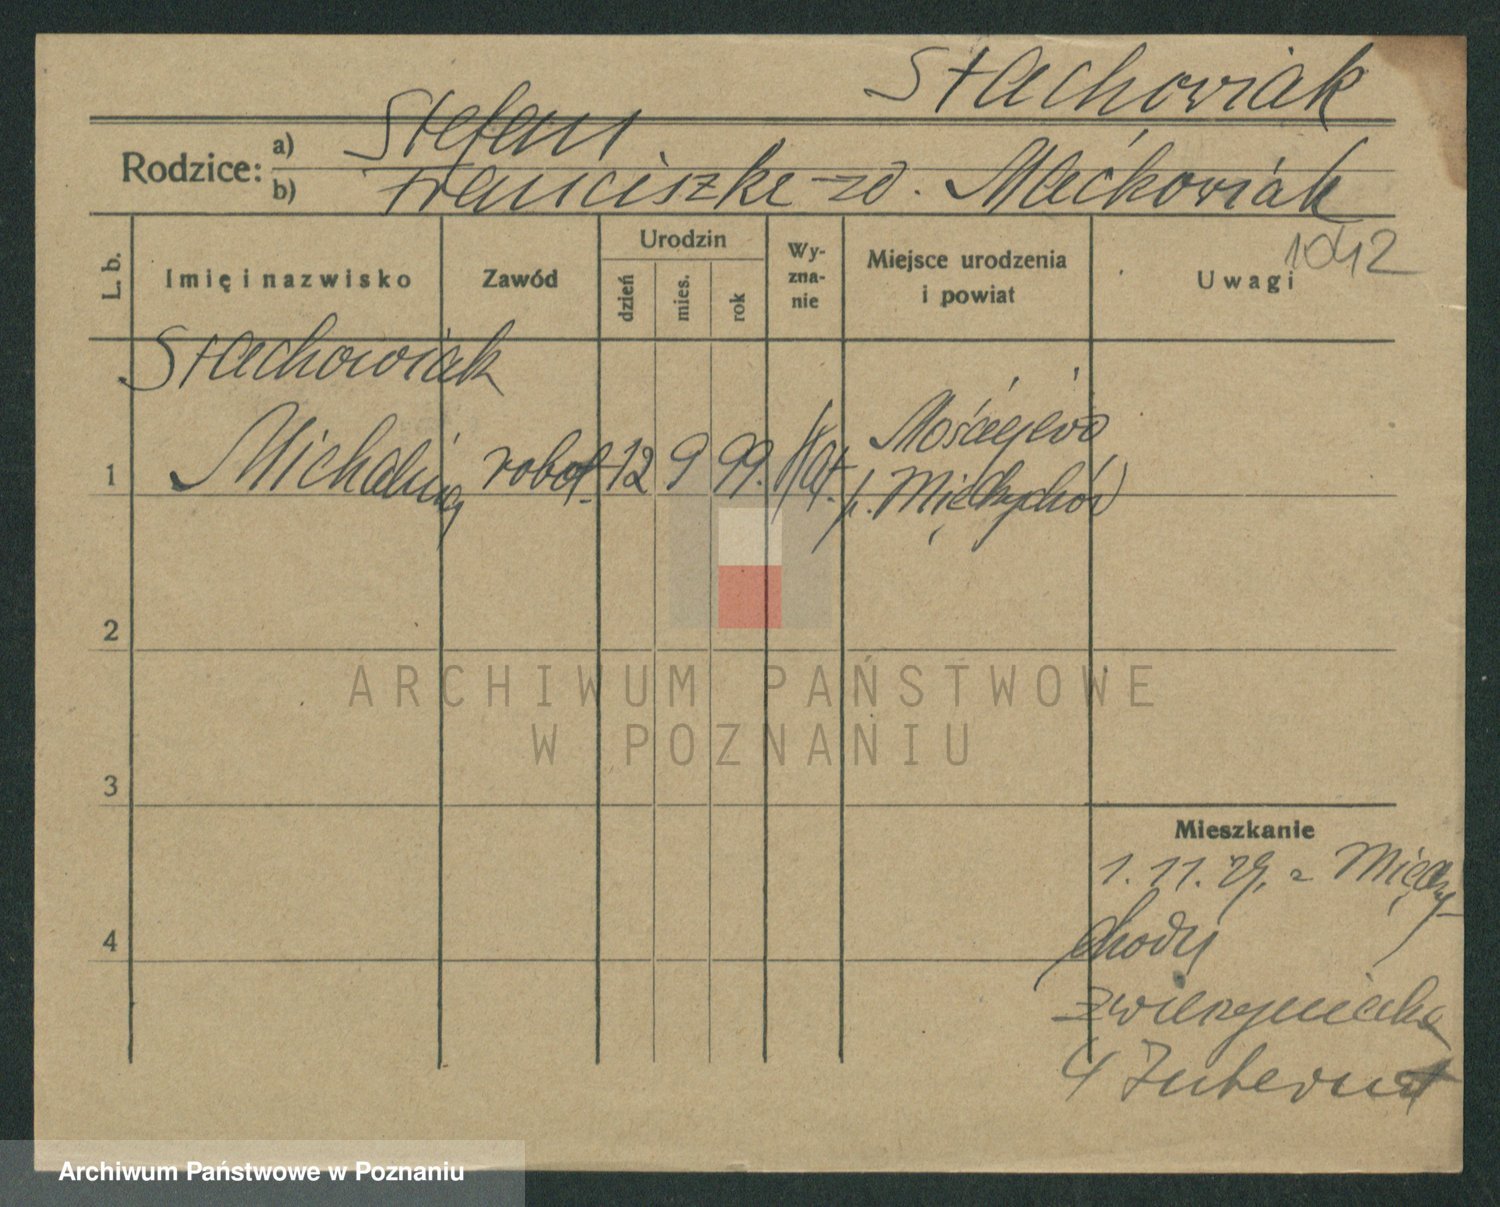 Stachowiak
Rodzice: a) Stefan
b) Franciszka zd. Maćkowiak
1042
L. b. Imię i nazwisko Zawód Urodzin dzień mies. rok Wy-zna-nie Miejsce urodzenia i powiat Uwagi
Stachowiak
1 Michalina robot. 12 9 99. kat. Mościejewo
p. Międzychód
2
ARCHIWUM PAŃSTWOWE
W POZNANIU
3
Mieszkanie
1. 11. 29. z Między-
chody
4
Zwierzyniecka
4 Internat
Archiwum Państwowe w Poznaniu